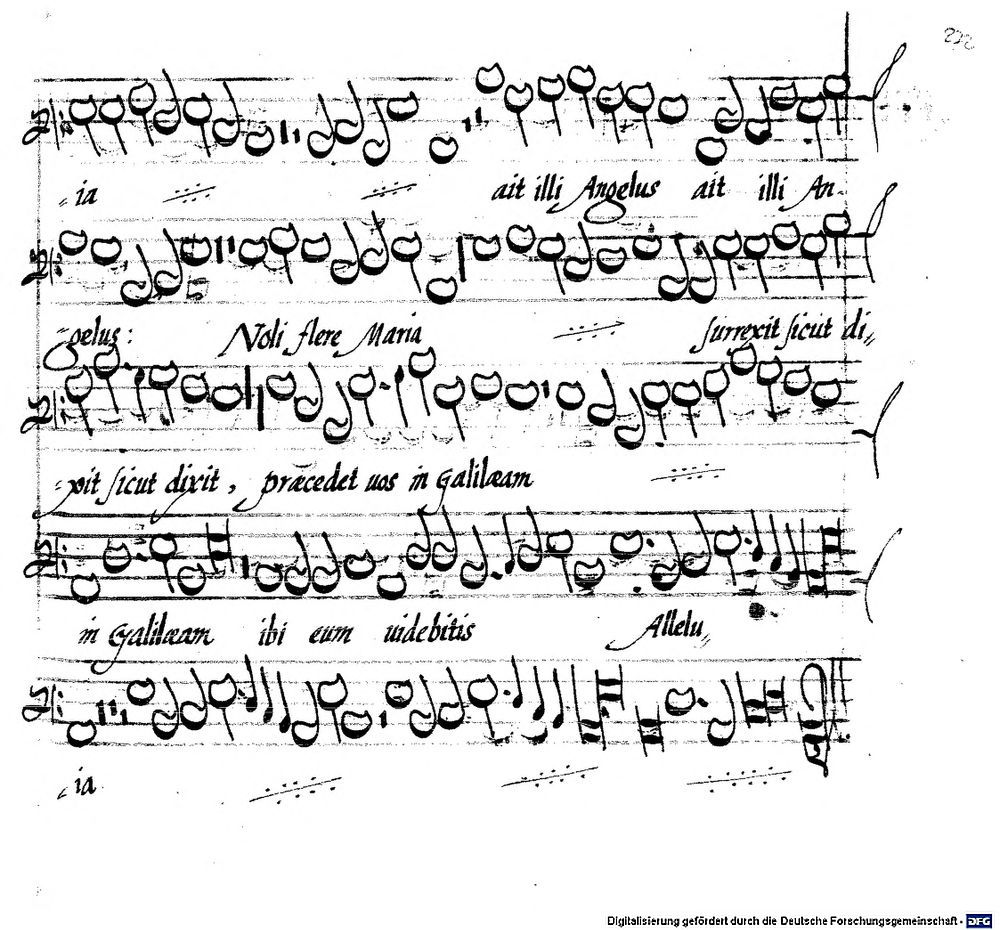 232
ia ait illi Angelus ait illi An-
gelus: Noli flere Maria surrexit sicut di„
xit sicut dixit, præcedet uos in Galilæam
in Galilæam ibi eum uidebitis Allelu„
ia
Digitalisierung gefördert durch die Deutsche Forschungsgemeinschaft - DFG